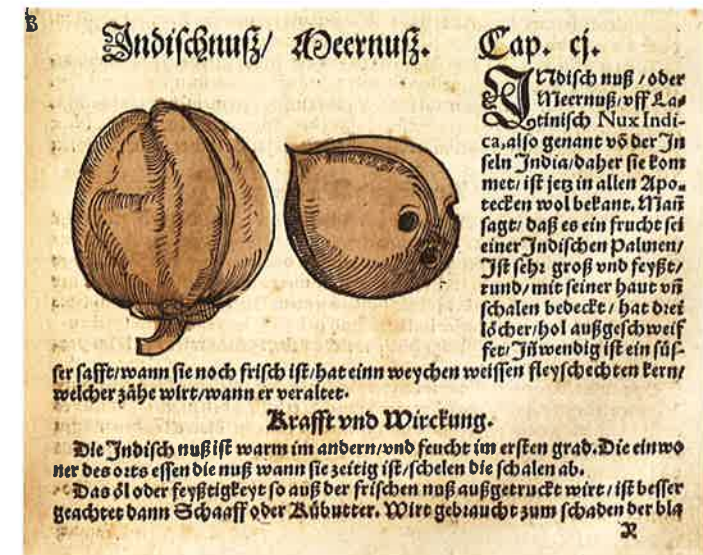 Indischnuß/ Meernuß. Cap. cj.
INdisch nuß/oder
Meernuß/vff La⸗
tinisch Nux Indi-
ca, also genant võ der In
seln India/daher sie kom
met/ist jetz in allen Apo⸗
tecken wol bekant. Mañ
sagt/daß es ein frucht sei
einer Indischen Palmen/
Ist sehr groß vnd feyßt/
rund/mit seiner haut vñ
schalen bedeckt/hat drei
löcher/hol außgeschweif
fet/Iñwendig ist ein süs-
ser safft/wann sie noch frisch ist/hat einn weychen weissen fleyschechten kern/
welcher zähe wirt/wann er veraltet.
Krafft vnd Wirckung.
Die Indisch nuß ist warm im andern/vnd feucht im ersten grad. Die einwo
ner des orts essen die nuß wann sie zeitig ist/schelen die schalen ab.
Das öl oder feyßtigkeyt so auß der frischen nuß außgetruckt wirt/ist besser
geachtet dann Schaaff oder Kübutter. Wirt gebraucht zum schaden der bla